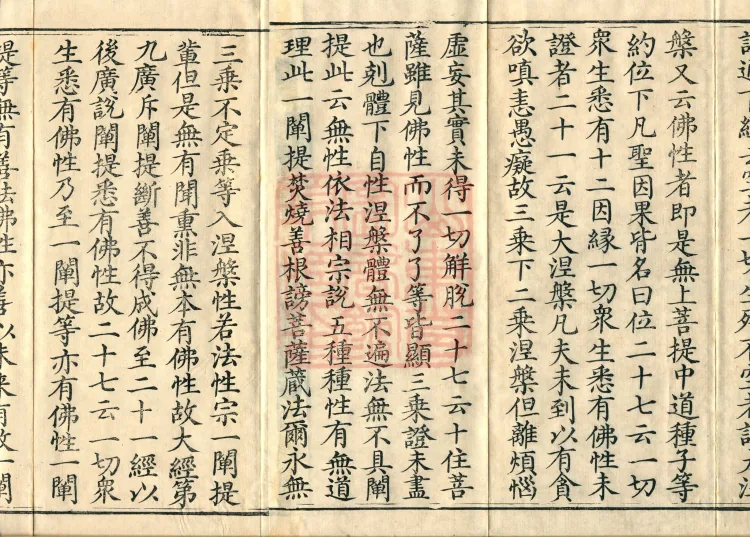 經云空者一切生死不空者謂大涅
槃又云佛性者即是無上菩提中道種子等
約位下凡聖因果皆名曰位二十七云一切
眾生悉有十二因緣一切眾生悉有佛性未
證者二十一云是大涅槃凡夫未到以有貪
欲嗔恚愚癡故三乘下二乘涅槃但離煩惱
虛妄其實未得一切解脫二十七云十住菩
薩雖見佛性而不了了等皆顯三乘證未盡
也剋體下自性涅槃體無不遍法無不具闡
提此云無性依法相宗說五種種性有無道
理此一闡提焚燒善根謗菩薩藏法爾永無
三乘不定乘等入涅槃性若法性宗一闡提
軰但是無有聞熏非無本有佛性故大經第
九廣斥闡提斷善不得成佛至二十一經以
後廣說闡提悉有佛性故二十七云一切眾
生悉有佛性乃至一闡提等亦有佛性一闡
提等無有善法佛性亦善以未來有故一闡